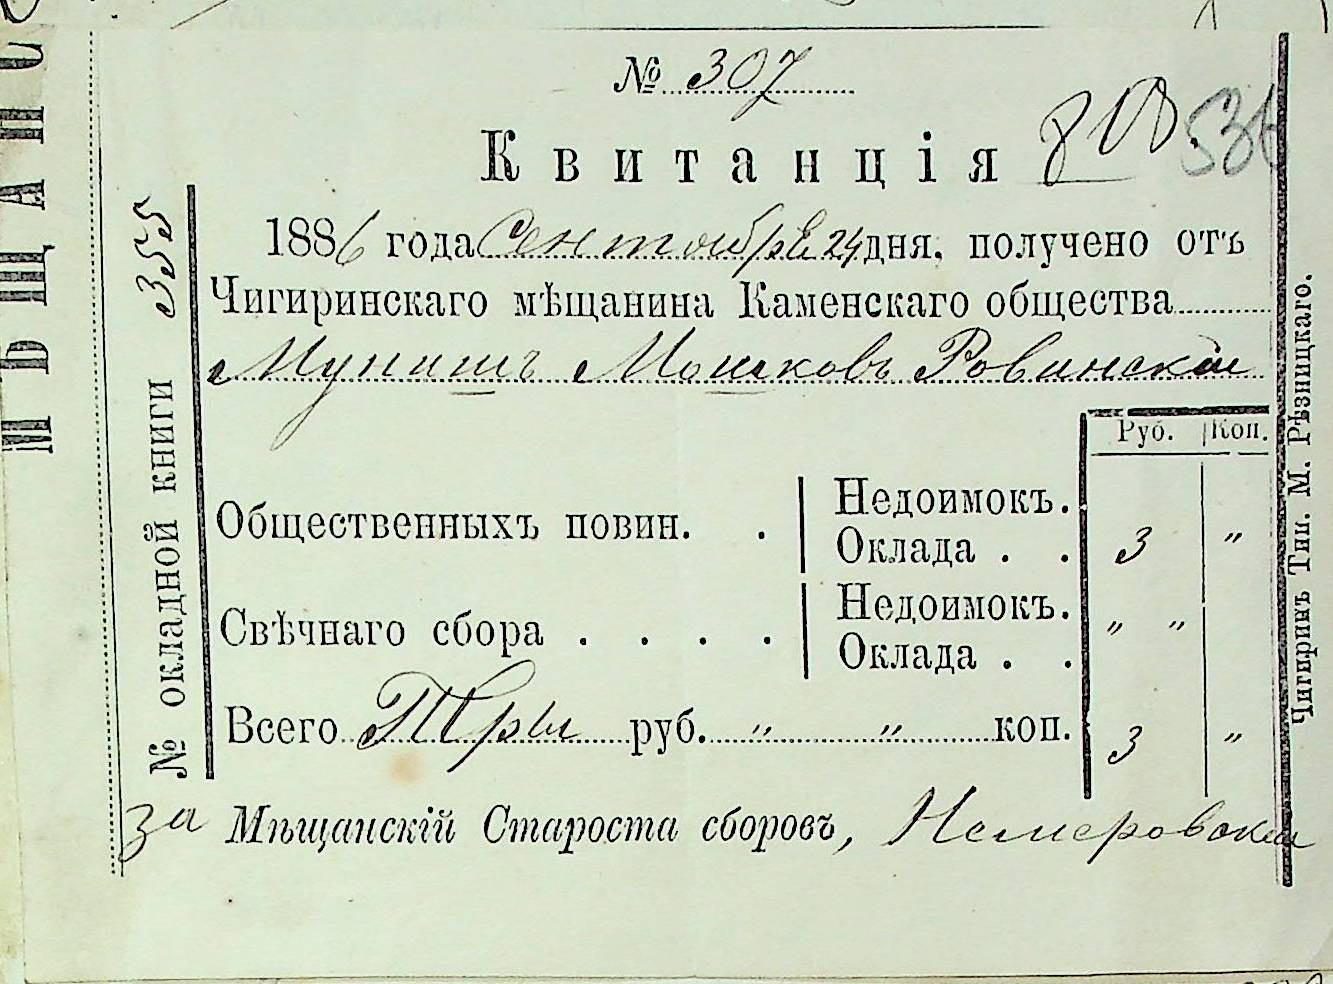 № 307
Квитанція
536
1886 года Сентября 24 дня, получено отъ
Чигиринскаго мѣщанина Каменскаго общества
Мунишъ Мошковъ Ровинскій
Руб. Коп.
Общественныхъ повин. . Недоимокъ.
Оклада . . 3 "
Свѣчнаго сбора . . . . Недоимокъ. " "
Оклада . .
Всего Три руб. " " коп. 3 "
за Мѣщанскій Староста сборовъ, Немеровскій
№ окладной книги 355
Чигиринъ Тип. М. Рѣзницкаго.